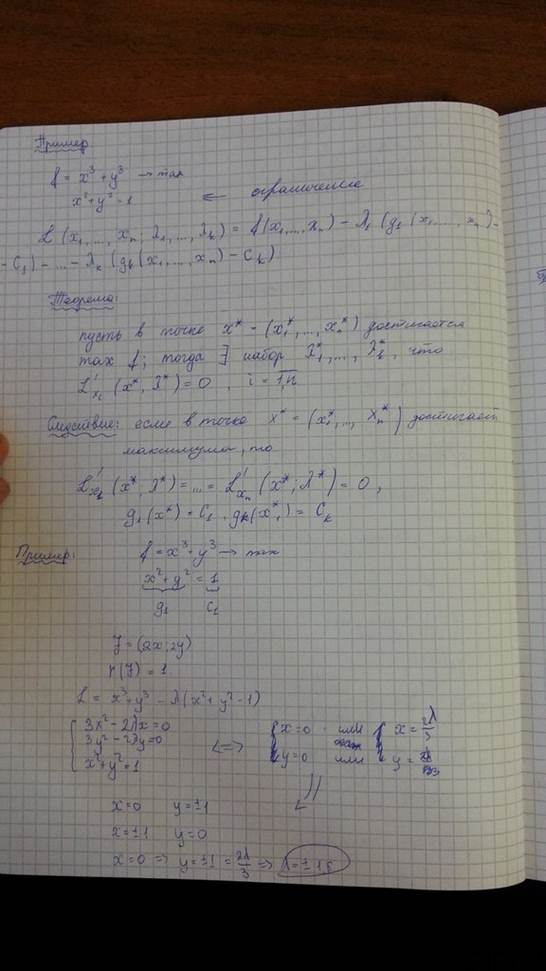 Пример
f = x³ + y³ → max
x² + y² = 1 ⇐ ограничение
L (x₁, ..., xₙ; λ₁, ..., λₖ) = f(x₁, ..., xₙ) - λ₁ (g₁ (x₁, ..., xₙ) -
- C₁) - ... - λₖ (gₖ(x₁, ..., xₙ) - Cₖ)
Теорема:
пусть в точке x* = (x₁*, ..., xₙ*) достигается
max f; тогда ∃ набор λ₁*, ..., λₖ*, что
L'ₓᵢ (x*, λ*) = 0, i = 1,n
Следствие: если в точке x* = (x₁*, ..., xₙ*) достигает
максимума, то
(x*, λ*) = ... = L'ₓₙ (x*; λ*) = 0,
g₁(x*) = C₁, gₖ(x*) = Cₖ
Пример: f = x³ + y³ → max
x² + y² = 1
g₁ C₁
J = (2x; 2y)
r(J) = 1.
L = x³ + y³ - λ(x² + y² - 1)
3x² - 2λx = 0
3y² - 2λy = 0 <=> x = 0 или x = 2λ/3
x² + y² = 1 y = 0 или y =
x = 0 y = ±1
x = ±1 y = 0
x = 0 => y = ±1 = 2λ/3 => λ = ± 1,5